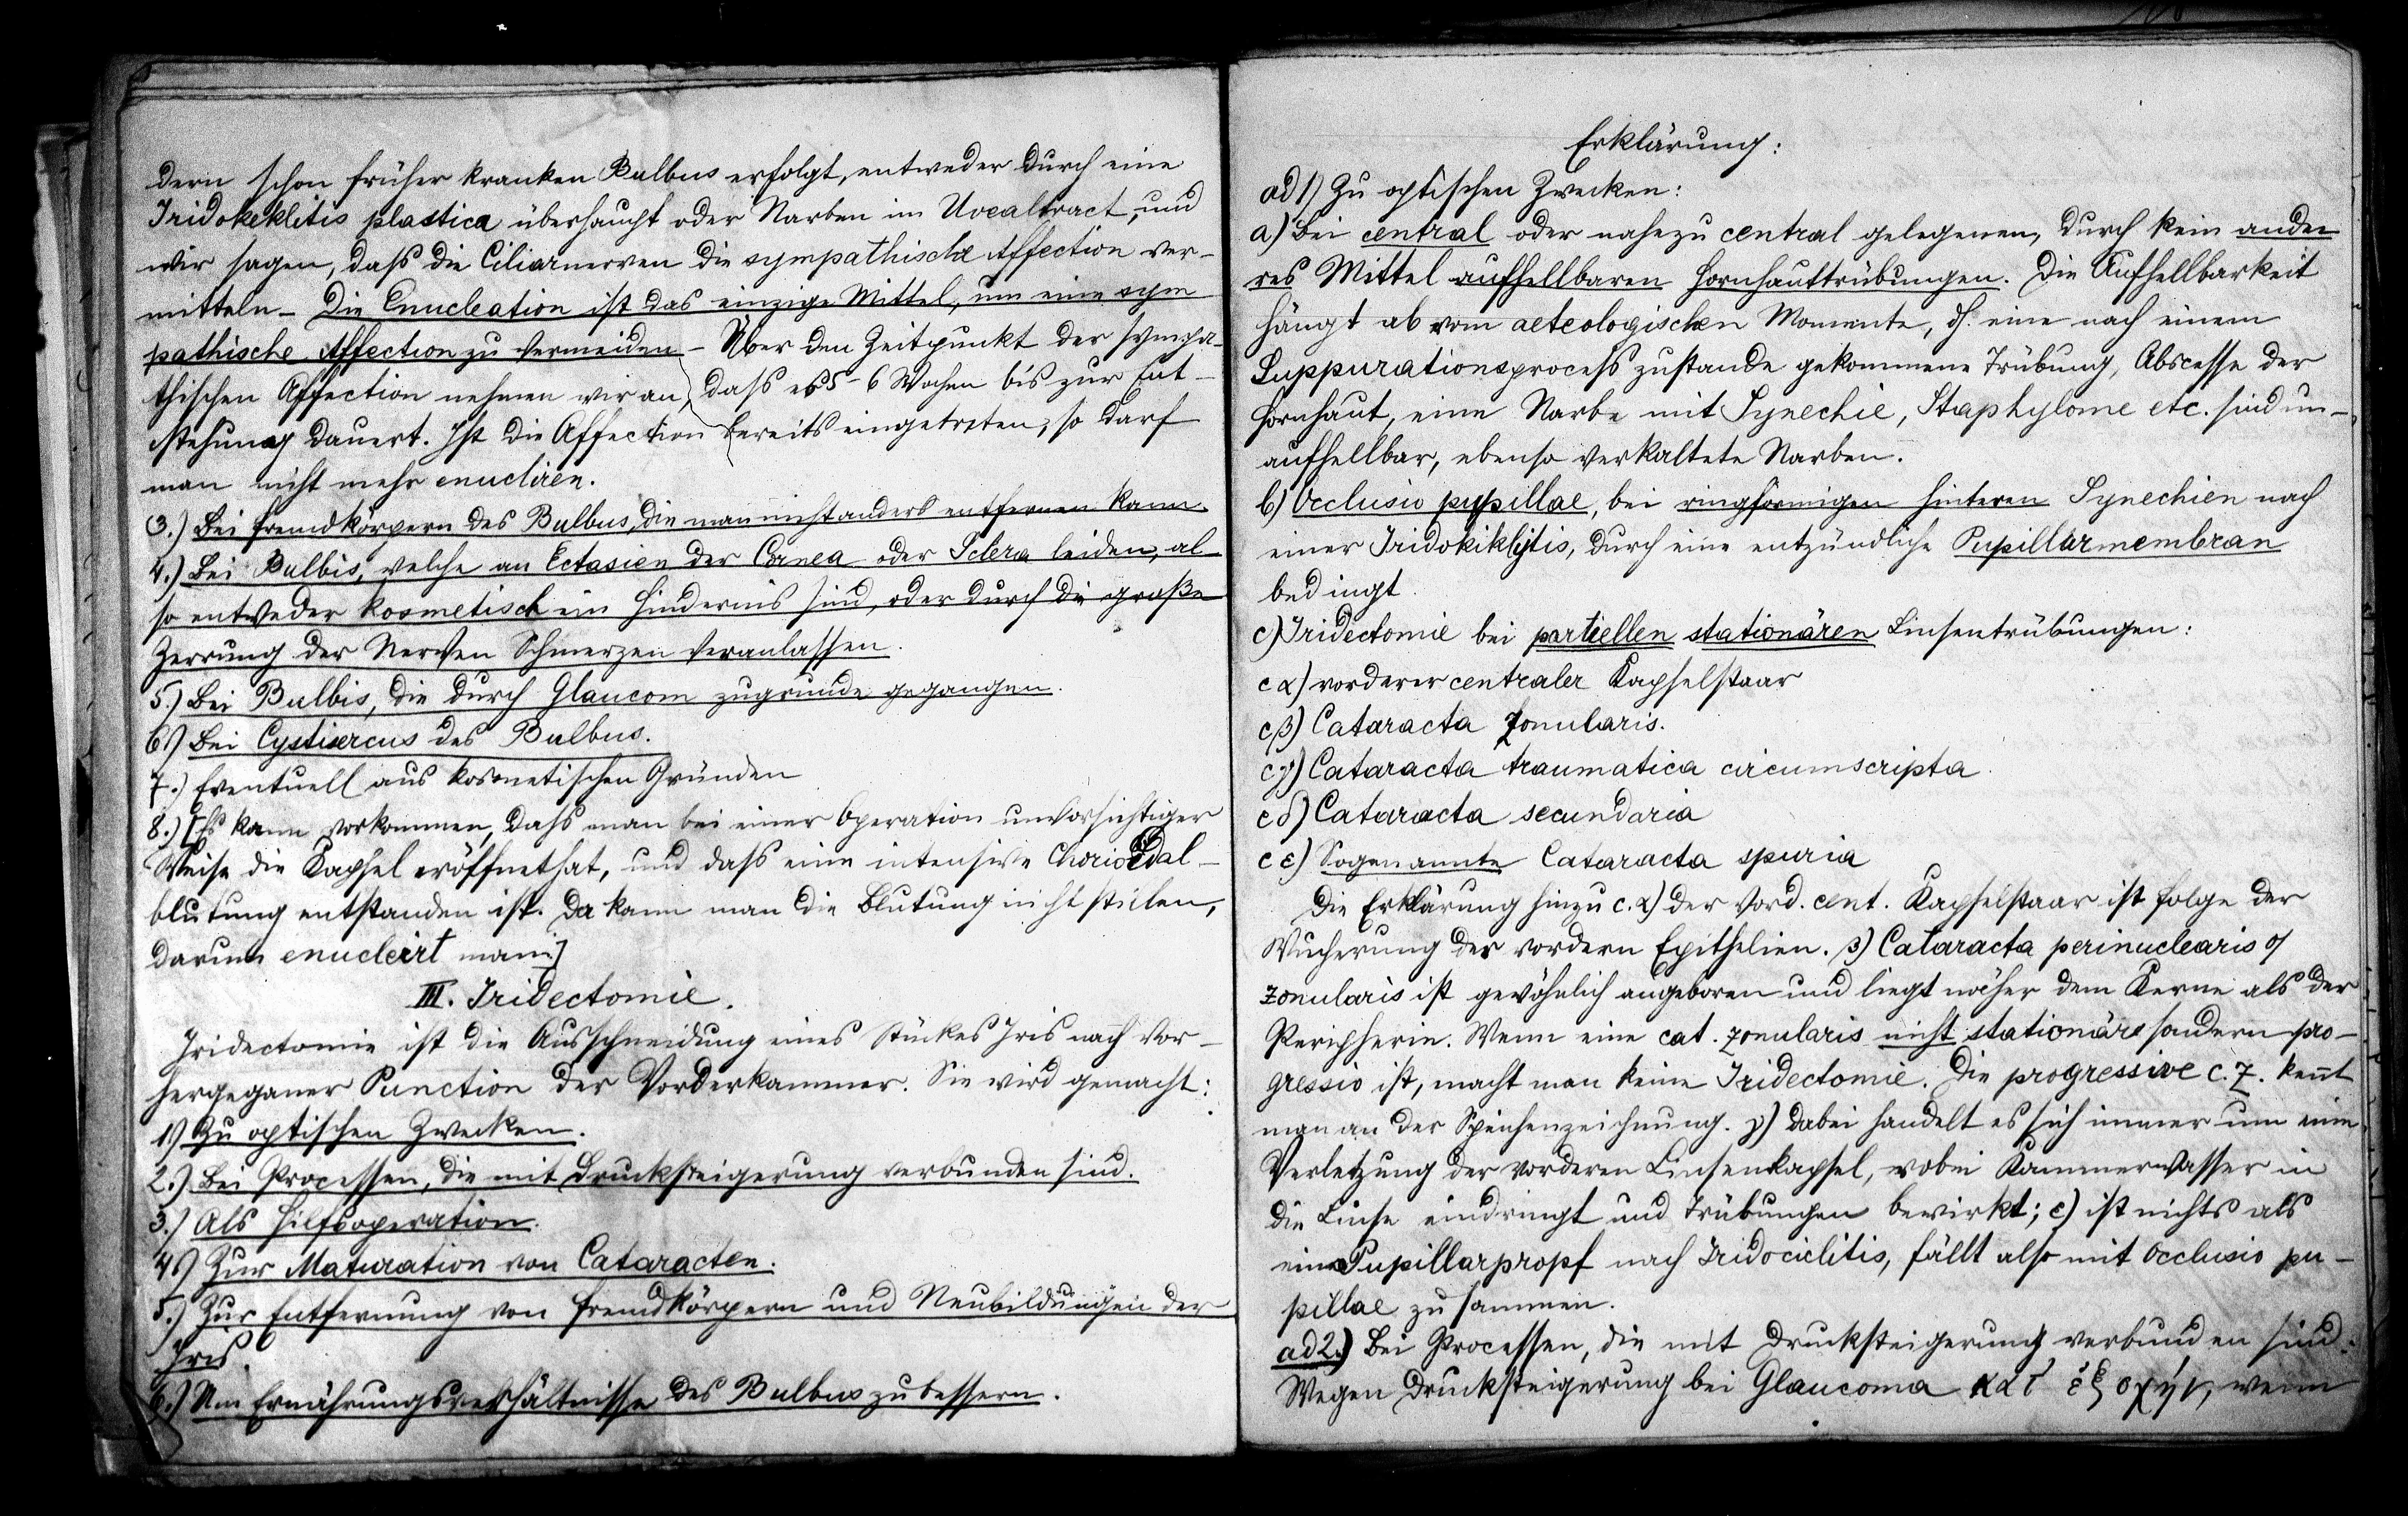 dern schon früher kranken Bulbus erfolgt, entweder durch eine
Iridokeklitis plastica überhaupt oder Narben im Uvealtract, und
wir sagen, daß die Ciliarnerven die sympathische Affection ver-
mitteln – Die Enucleation ist das einzige Mittel, um eine sym
pathische Affection zu vermeiden – Über den Zeitpunkt der sympa-
thischen Affection nehmen wir an, dass es 5–6 Wochen bis zur Ent-
stehung dauert. Ist die Affection bereits eingetreten, so darf
man nicht mehr enucliren.
3.) Bei Fremdkörpern des Bulbus, die man nicht anders entfernen kann.
4.) Bei Bulbis, welche an Ectasien der Cornea oder Sclera leiden, al
so entweder kosmetisch ein Hindernis sind, oder durch die große
Zerrung der Nerven Schmerzen veranlassen.
5.) Bei Bulbis, die durch Glaucom zugrunde gegangen.
6.) Bei Cysticercus des Bulbus.
7.) Eventuell aus kosmetischen Gründen
8.) [Es kann vorkommen, dass man bei einer Operation unvorsichtiger
Weise die Kapsel eröffnet hat, und dass eine intensive Chorioidal-
blutung entstanden ist. Da kann man die Blutung nicht stillen,
darum enucleirt man.]
III. Iridectomie.
Iridectomie ist die Ausschneidung eines Stückes Iris nach vor-
hergeganer Punction der Vorderkammer. Sie wird gemacht:
1.) Zu optischen Zwecken.
2.) Bei Processen, die mit Drucksteigerung verbunden sind.
3.) Als Hilfsoperation.
4.) Zur Maturation von Cataracten.
5.) Zur Entfernung von Fremdkörpern und Neubildungen der
Iris.
6.) Um Ernährungsverhältnisse des Bulbus zu bessern.
Erklärung:
ad 1) Zu optischen Zwecken:
a) Bei central oder nahezu central gelegenen, durch kein ande
res Mittel aufhellbaren Hornhauttrübungen. Die Aufhellbarkeit
hängt ab vom aeteologischen Momente, dh. eine nach einem
Suppurationsprocess zustande gekommene Trübung, Abscesse der
Hornhaut, eine Narbe mit Synechie, Staphylome etc. sind un-
aufhellbar, ebenso verkaltete Narben.
b) Occlusio pupillae, bei ringförmigen hinteren Synechien nach
einer Iridokiklitis, durch eine entzündliche Pupillarmembran
bedingt.
c) Iridectomie bei partiellen stationären Linsentrübungen:
c α) vorderer centraler Kapselstaar
c β) Cataracta zonularis.
c γ) Cataracta traumatica circumscripta.
c δ) Cataracta secundaria
c ε) Sogenannte Cataracta spuria
Die Erklärung hinzu c. α) der vord. cent. Kapselstaar ist Folge der
Wucherung der vordern Epithelien. β) Cataracta perinuclearis
zonularis ist gewöhnlich angeboren und liegt näher dem Kerne als der
Peripherie. Wenn eine cat. zonularis nicht stationäre sondern pro-
gressiv ist, macht man keine Iridectomie. Die progressive c. z. kennt
man an der Speichenzeichnung. γ) Dabei handelt es sich immer um eine
Verletzung der vorderen Linsenkapsel, wobei Kammerwasser in
die Linse eindringt und Trübungen bewirkt; ε) ist nichts als
ein Pupillarpropf nach Iridociclitis, fällt also mit Occlusio pu-
pillae zusammen.
ad 2.) Bei Processen, die mit Drucksteigerung verbunden sind:
Wegen Drucksteigerung bei Glaucoma κατ' ἐξοχήν, wenn